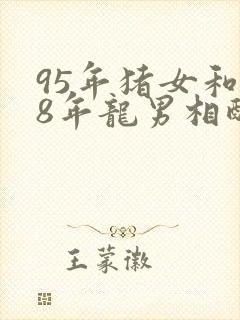 95年猪女和
8年龍男相
王蒙徽